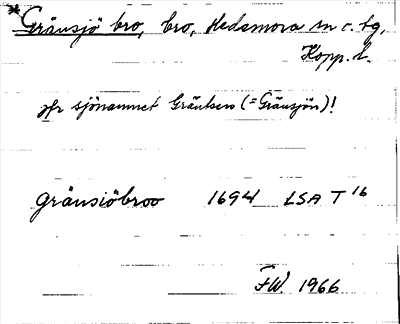 *Gränsjö bro, bro, Hedemora sn o. tg,
Kopp. l.
jfr sjönamnet Gränken (= Gränsjön)!
gränsiöbroo 1694 LSA T 16
FW. 1966